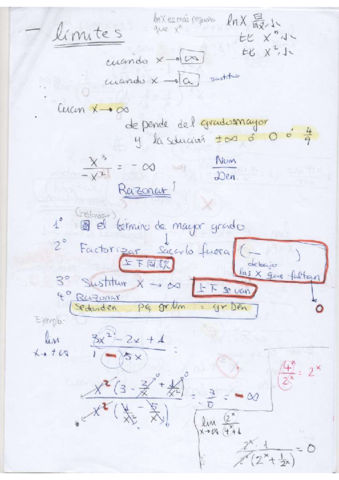 límites
lnX es más pequeño
que xⁿ
ln X
比 xⁿ 小
比 x 小
cuando x → ∞
cuando x → a sustituir
Cuan x → ∞
depende del grado mayor
y la solución ±∞ ó 0 ó 4/9
x³/-x² = -∞
Num/Den.
Razonar!
1º el término de mayor grado
2º Factorizar Sacarlo fuera ( — )
debajo
las X que faltan
上下
3º Sustituir x → ∞ 上下
0
4º Razonar
Se dividen pq gr. Num = gr Den
Ejemplo:
lim x→±∞ 3x² - 2x + 1 / 1 - 5x
x² (3 - 2/x + 1/x²) / x² (1/x² - 5/x) = 3/-0 = -∞
4ˣ/2ˣ = 2ˣ
lim x→∞ 2ˣ/4ˣ+1
2ˣ · 1 / 2ˣ (2ˣ + 1/2ˣ) = 0